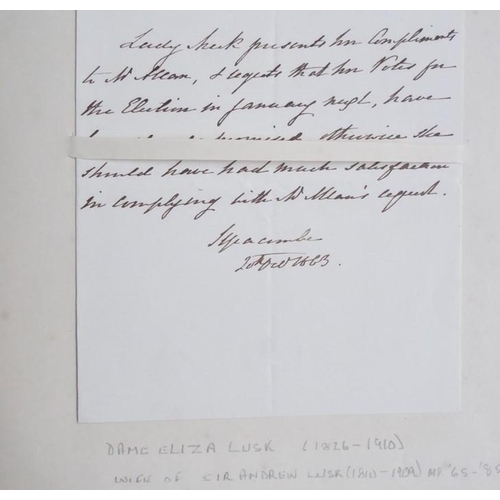 Lady Meek presents her Compliments
to Mr Mean, & regrets that her Votes for
the Election in January next, have
been promised, otherwise she
should have had much satisfaction
in complying with Mr Mean's request.
Ilfracombe
20th Oct 1863.
DAME ELIZA LUSK (1826-1910)
WIFE OF SIR ANDREW LUSK (1810-1909) MP '65-'85